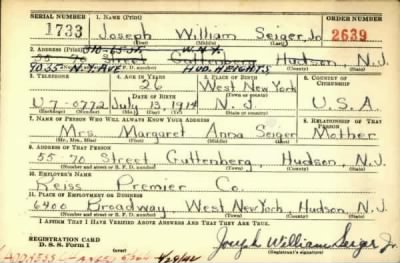 SERIAL NUMBER 1. NAME (Print) ORDER NUMBER
1733 Joseph William Seiger, Jr. 2639
(First) (Middle) (Last)
2. ADDRESS (Print) 310-65 St. W.N.Y.
55 70 Street Guttenberg Hudson, N.J.
4035 N.Y. AVE HUD. HEIGHTS
(Number and street or R. F. D. number) (Town) (County) (State)
3. TELEPHONE 4. AGE IN YEARS 5. PLACE OF BIRTH 6. COUNTRY OF CITIZENSHIP
26 West New York
DATE OF BIRTH (Town or county)
U7-0772 July 13, 1914 N.J. U.S.A.
(Exchange) (Number) (Mo.) (Day) (Yr.) (State or country)
7. NAME OF PERSON WHO WILL ALWAYS KNOW YOUR ADDRESS 8. RELATIONSHIP OF THAT PERSON
Mrs. Margaret Anna Seiger Mother
(Mr., Mrs., Miss) (First) (Middle) (Last)
9. ADDRESS OF THAT PERSON
55 70 Street Guttenberg, Hudson, N.J.
(Number and street or R. F. D. number) (Town) (County) (State)
10. EMPLOYER'S NAME
Reiss Premier Co.
11. PLACE OF EMPLOYMENT OR BUSINESS
6400 Broadway, West New York, Hudson, N.J.
(Number and street or R. F. D. number) (Town) (County) (State)
I AFFIRM THAT I HAVE VERIFIED ABOVE ANSWERS AND THAT THEY ARE TRUE.
REGISTRATION CARD
D. S. S. Form 1 Joseph William Seiger Jr.
(Registrant's signature)
ADDRESS 4/28/42